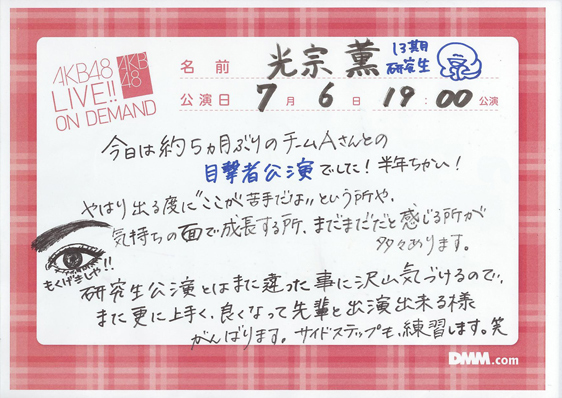 AKB48
LIVE!!
ON DEMAND
AKB
48
名前 光宗 薫 13期
研究生
公演日 7月6日 19:00公演
今日は約5ヵ月ぶりのチームAさんとの
目撃者公演でした！半年ちかい！
やはり出る度に"ここが苦手だな"という所や、
気持ちの面で成長する所、まだまだだと感じる所が
多々あります。
もくげきしゃ!!
研究生公演とはまた違った事に沢山気づけるので、
また更に上手く、良くなって先輩と出演出来る様
がんばります。サイドステップも、練習します。笑
DMM.com